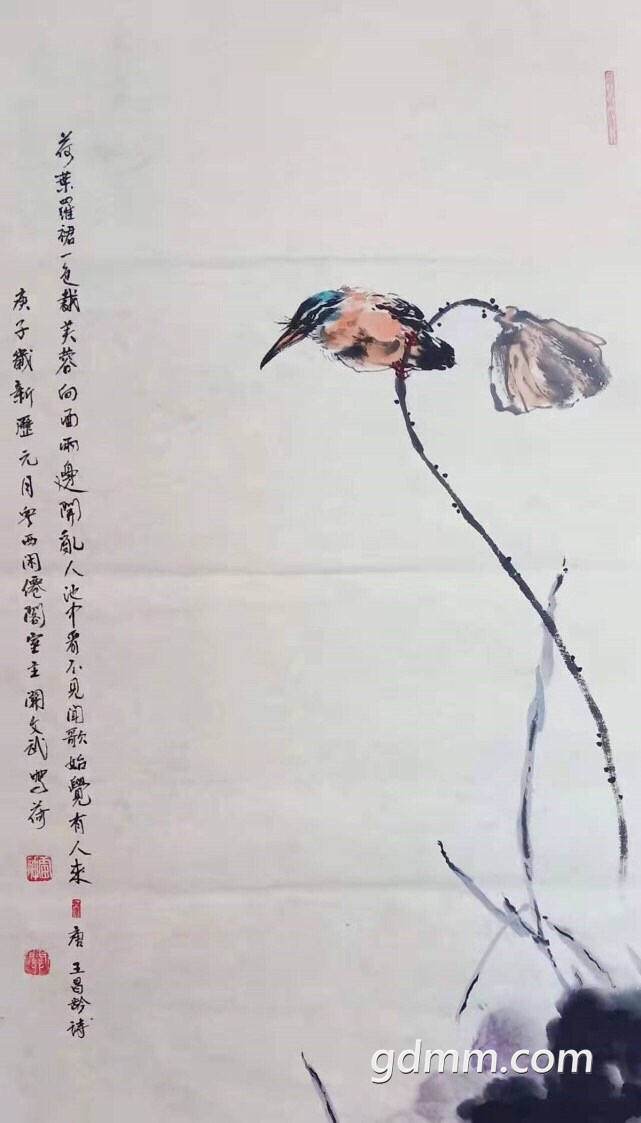 荷葉羅裙一色裁芙蓉向面兩邊開亂人池中看不見聞歌始覺有人來
唐 王昌齡詩
庚子歲新歷元月粤西闲僊閣室主關文武寫荷
gdmm.com